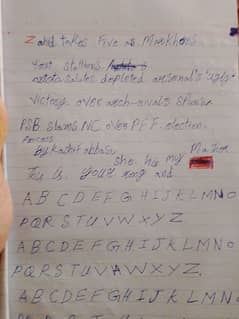 Zahid takes Five as Markhors
Host stallions
Arteta salutes depleted arsenal's 'ugly'
Victory over arch-rivals Spurs
PSB slams NC over PFF election
Process
By Kashif abbasi
she his my
Tu is your and
A B C D E F G H I J K L M N O
P Q R S T U V W X Y Z
A B C D E F G H I J K L M N O
P Q R S T U V W X Y Z.
A B C D E F G H I J K L M N O